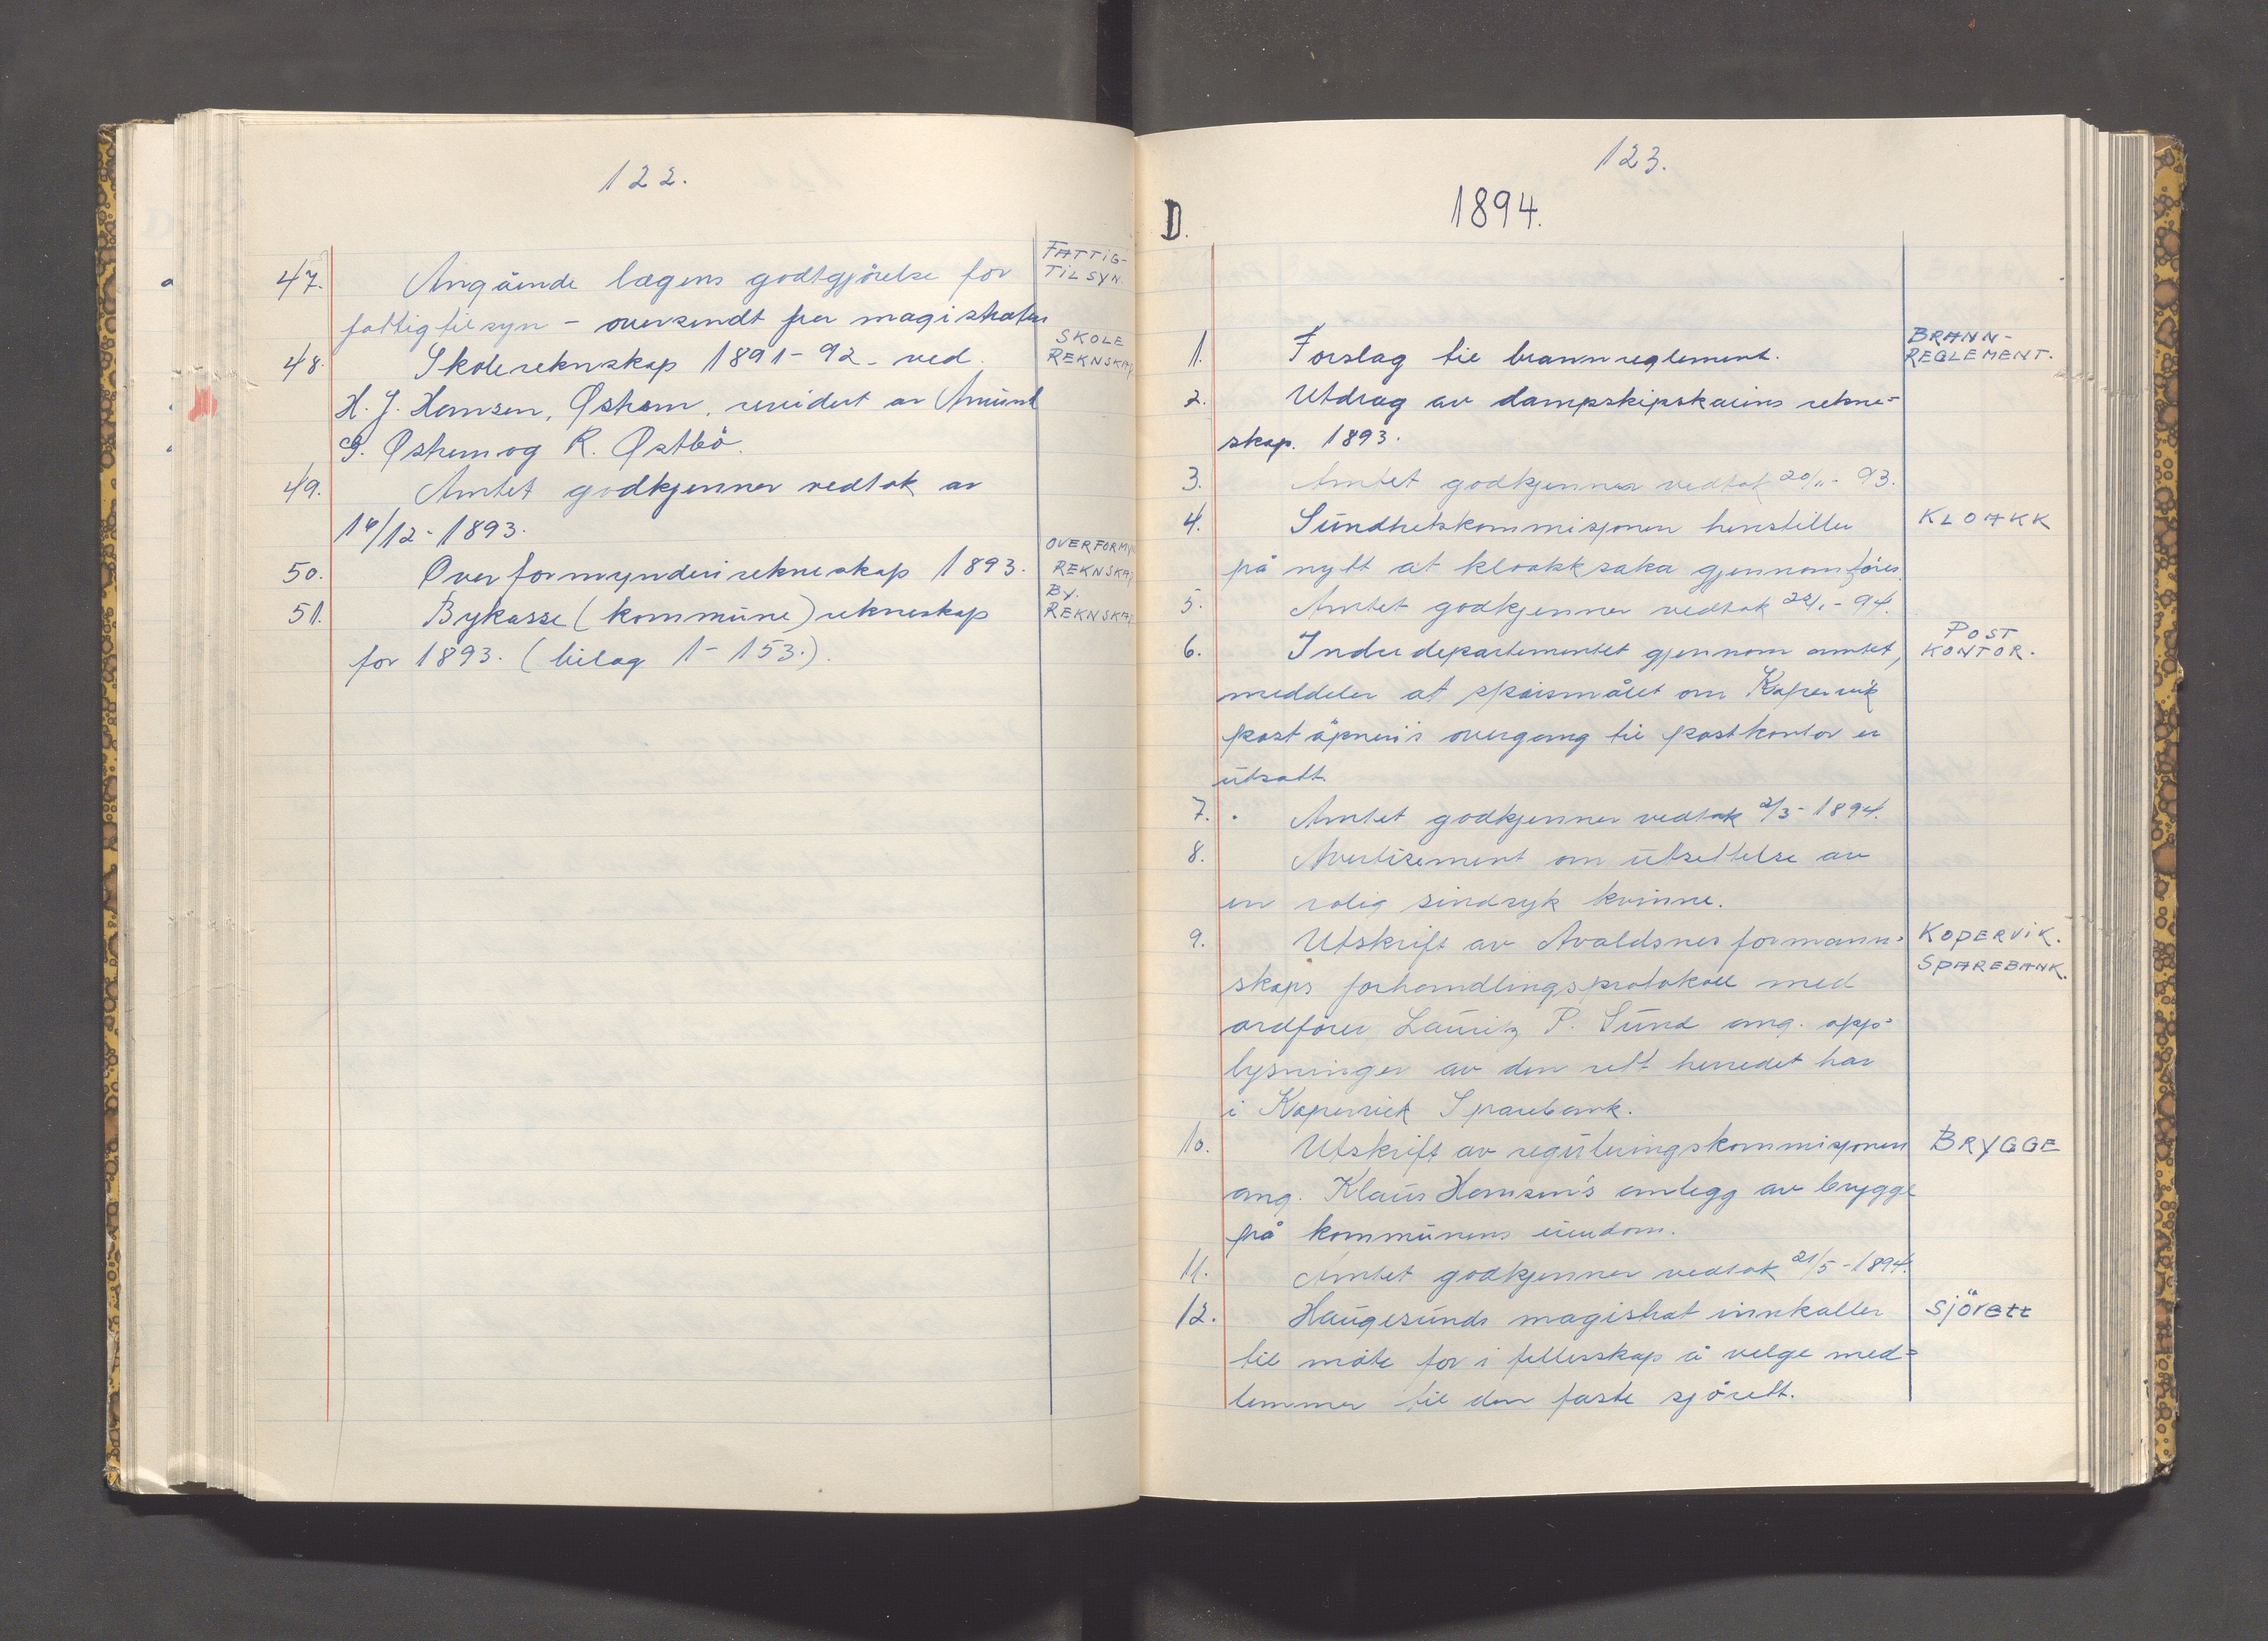 122.
FATTIG-
TILSYN.
47. Angående lægens godtgjörelse for
fattigtilsyn - oversendt fra magistraten
SKOLE
REKNSKAP
48. Skolereknskap 1891-92 - ved
H. J. Hansen, Østhem, revidert av Amund
G. Østhem og R. Østbö.
49. Amtet godkjenner vedtak av
16/12-1893.
OVERFORMYN
REKNSKAP
50. Overformynderirekneskap 1893.
BY.
REKNSKAP
51. Bykasse (kommune) rekneskap
for 1893. (bilag 1-153.).
123.
D. 1894.
BRANN-
REGLEMENT.
1. Forslag til brannreglement.
2. Utdrag av dampskipskaiens rekne-
skap. 1893.
3. Amtet godkjenner vedtak 20/11-93.
4. Sundhetskommisjonen henstiller KLOAKK
på nytt at kloakksaka gjennomföres.
5. Amtet godkjenner vedtak 22/1-94.
POST
KONTOR.
6. Indredepartementet gjennom amtet,
meddeler at spörsmålet om Kopervik
poståpneri's overgang til postkontor er
utsatt.
7. Amtet godkjenner vedtak 2/3-1894.
8. Avertisement om utsettelse av
en rolig sindsyk kvinne.
9. Utskrift av Avaldsnes formann- KOPERVIK.
SPAREBANK.
skaps forhandlingsprotokoll med
ordförer Lauriz P. Sund ang. opp-
lysninger av den rett herredet har
i Kopervik Sparebank.
10. Utskrift av reguleringskommisjonen BRYGGE
ang. Klaus Hansen's anlegg av brygge
på kommunens eiendom.
11. Amtet godkjenner vedtak 21/5-1894.
12. Haugesunds magistrat innkaller sjörett
til möte for i fellesskap å velge med-
lemmer til den faste sjörett.